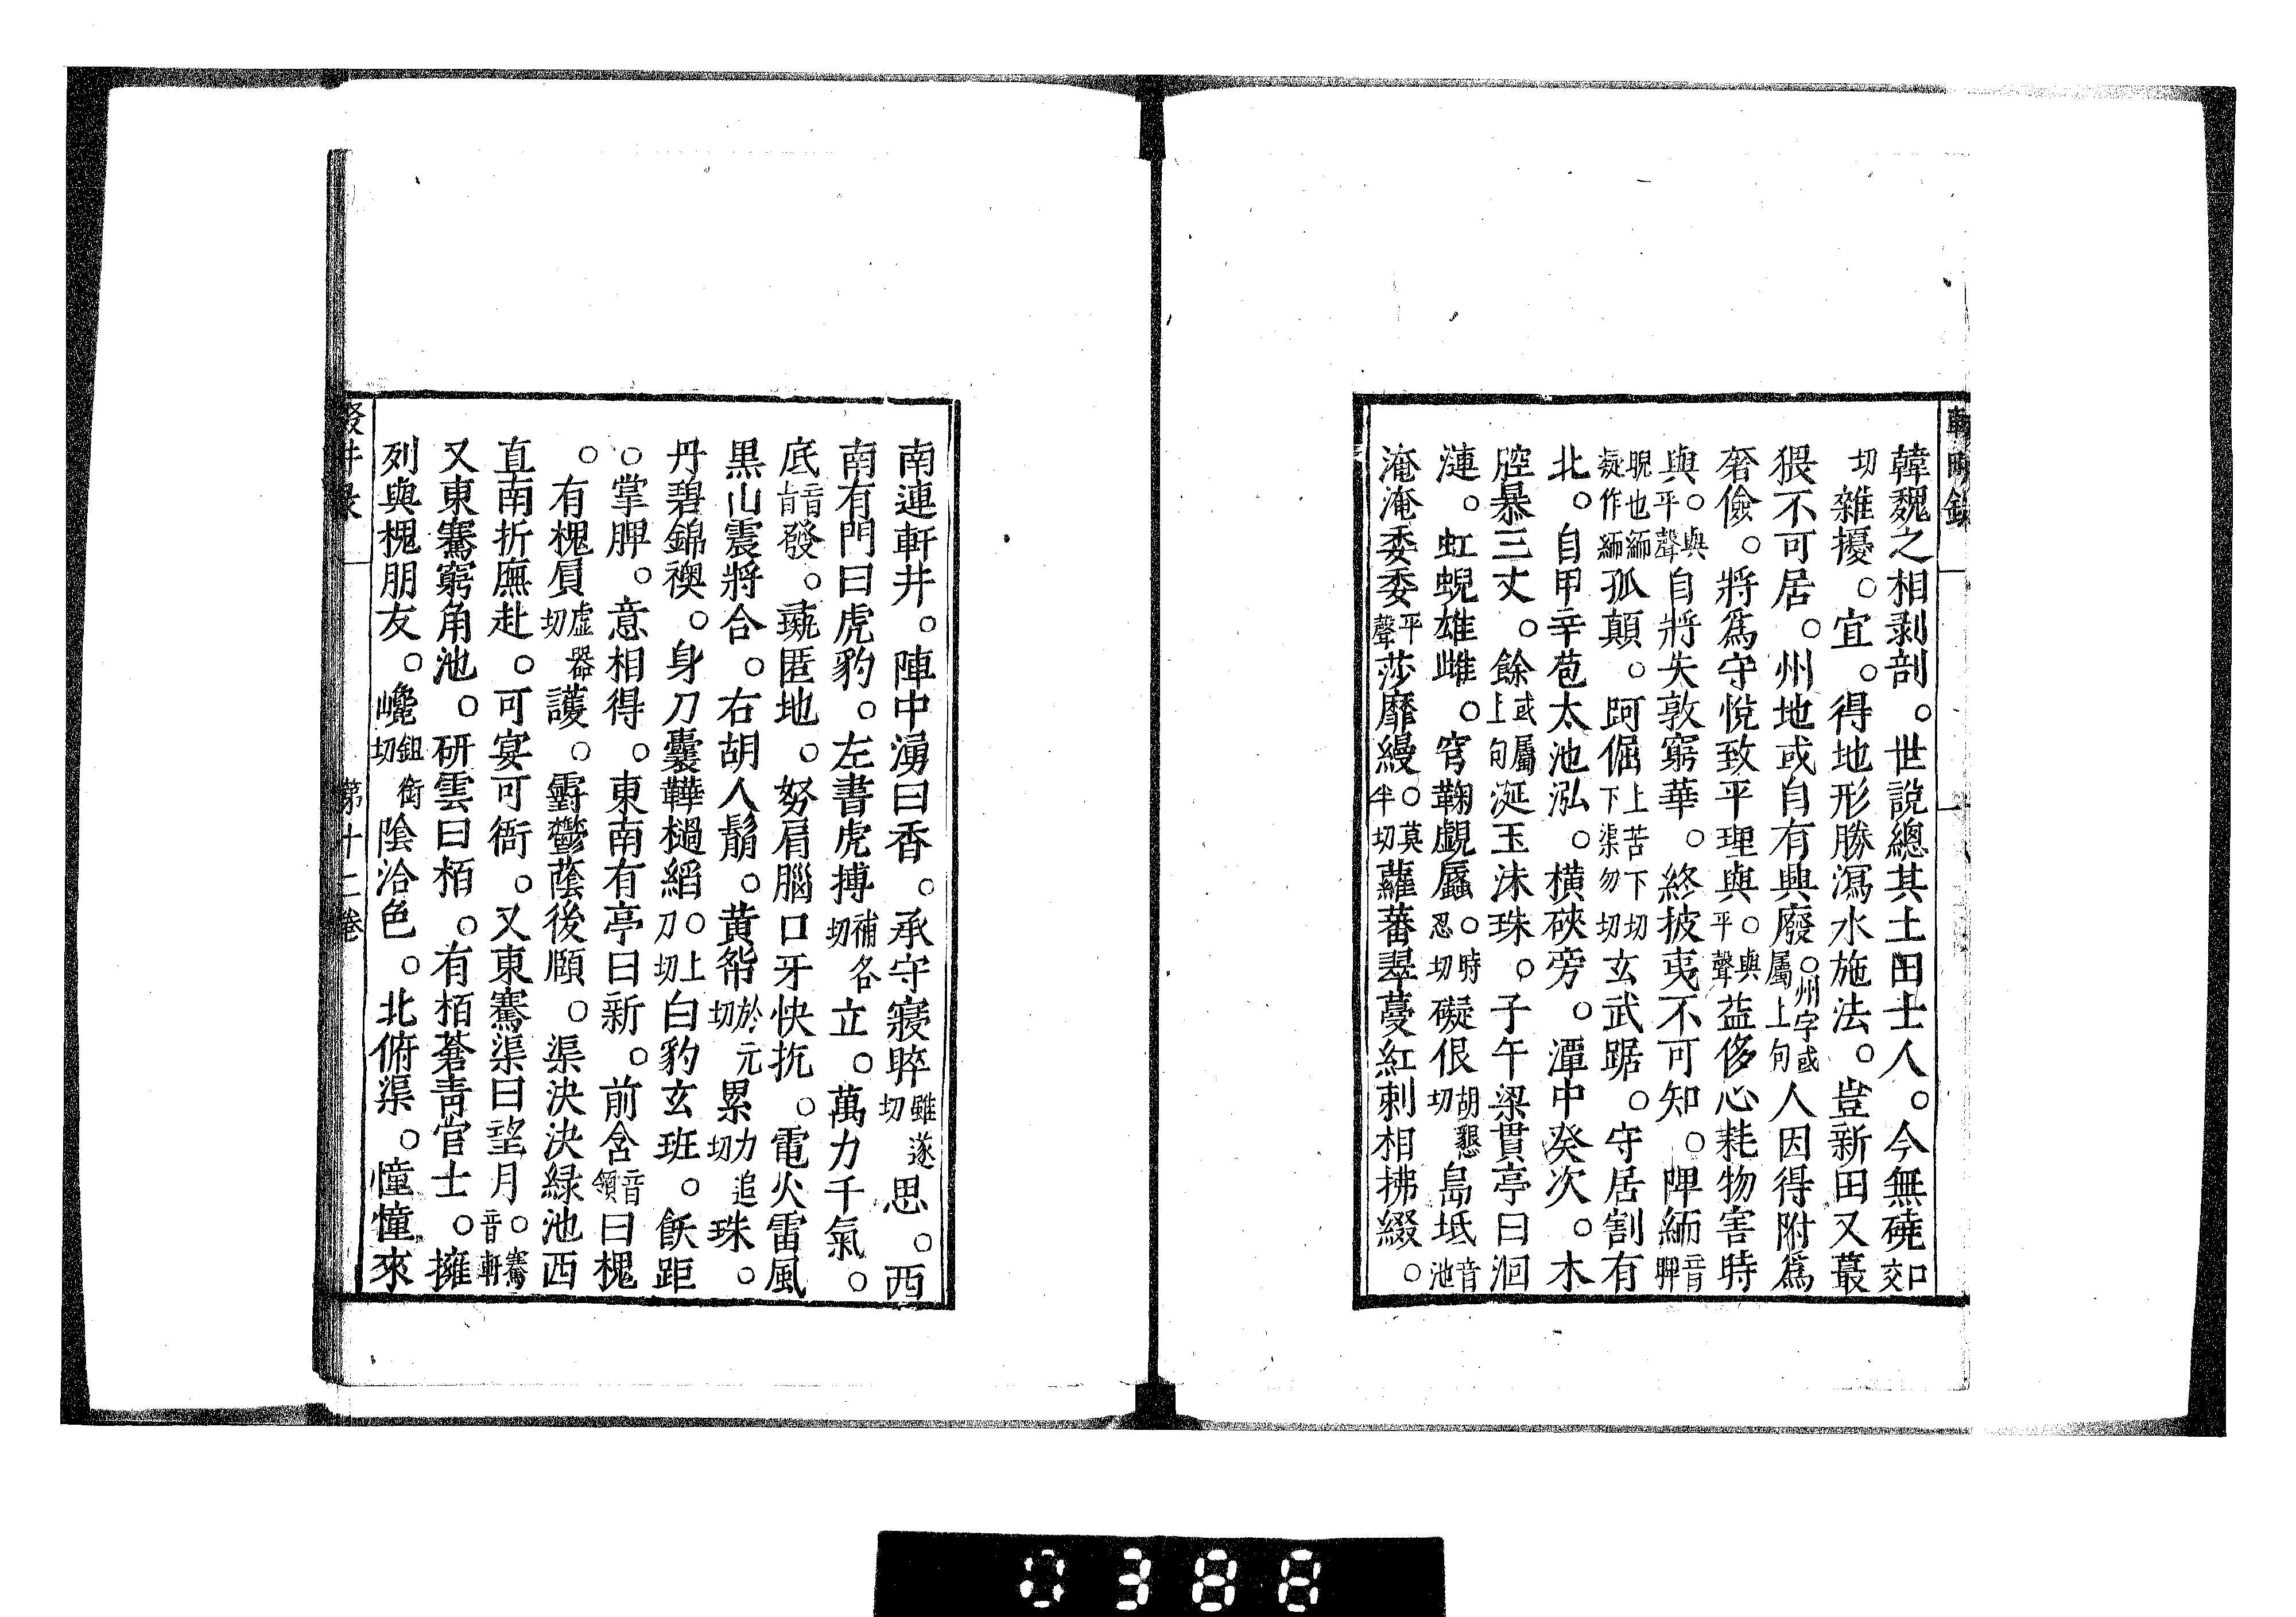 輟耕錄
韓魏之相剥剖。世說總其土田士人。今無磽口交
切雜擾。宜。得地形勝瀉水施法。豈新田又蕞
猥不可居。州地或自有興廢。州字或屬上句人因得附爲
奢儉。將爲守悅致平理與。與平聲益侈心耗物害時
與。與平聲自將失敦窮華。終披夷不可知。陴緬音脾
睨也緬疑作緬孤顛。跒倔上苦下切下渠勿切玄武踞。守居割有
北。自甲辛苞太池泓。橫硤旁。潭中癸次。木
腔暴三丈。餘或屬上句涎玉沫珠。子午梁貫亭曰洄
漣。虹蜺雄雌。穹鞠覷蜃。時忍切礙佷胡懇切島坻音池
淹淹委委平聲莎靡縵。莫半切蘿蕃翠蔓紅刺相拂綴。
南連軒井。陣中湧曰香。承守寢睟雖遂切思。西
南有門曰虎豹。左書虎搏補各切立。萬力千氣。
底音旨發。彘匿地。努肩腦口牙快抗。電火雷風
黒山震將合。右胡人鬅。黄帣於元切累力追切珠。
丹碧錦襖。身刀囊鞾檛縚。上刀切白豹玄班。飫距
。掌胛。意相得。東南有亭曰新。前含音頷曰槐
。有槐屓虛器切護。霨鬱蔭後頤。渠決決緑池西
直南折廡赴。可宴可衙。又東騫渠曰望月。騫音軒
又東騫窮角池。研雲曰栢。有栢蒼青官士。擁
列與槐朋友。巉鉏銜切陰洽色。北俯渠。憧憧來
輟耕录
第十二卷
0388